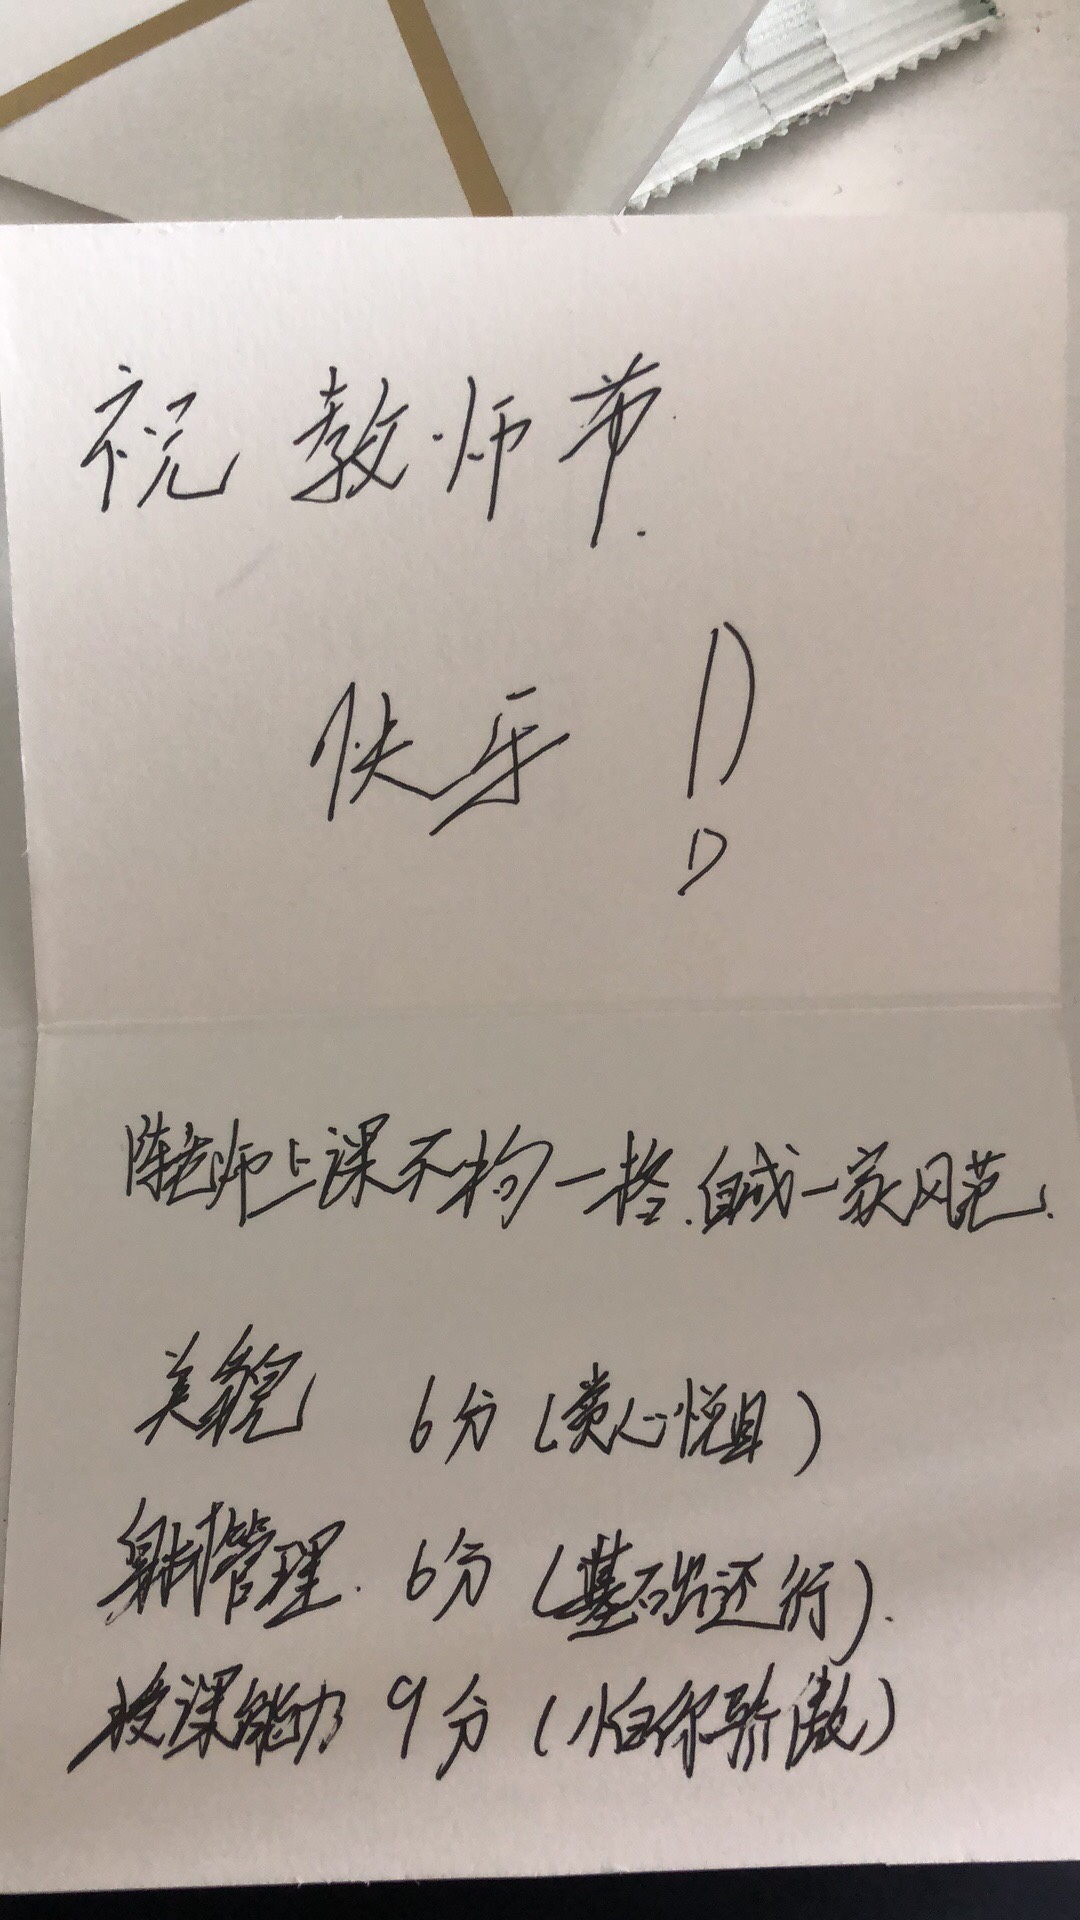 祝 教师节.
快乐!
陈老师上课不拘一格.自成一家风范.
美貌 6分(赏心悦目)
身材管理. 6分(基础还行).
授课能力 9分(怕你骄傲)